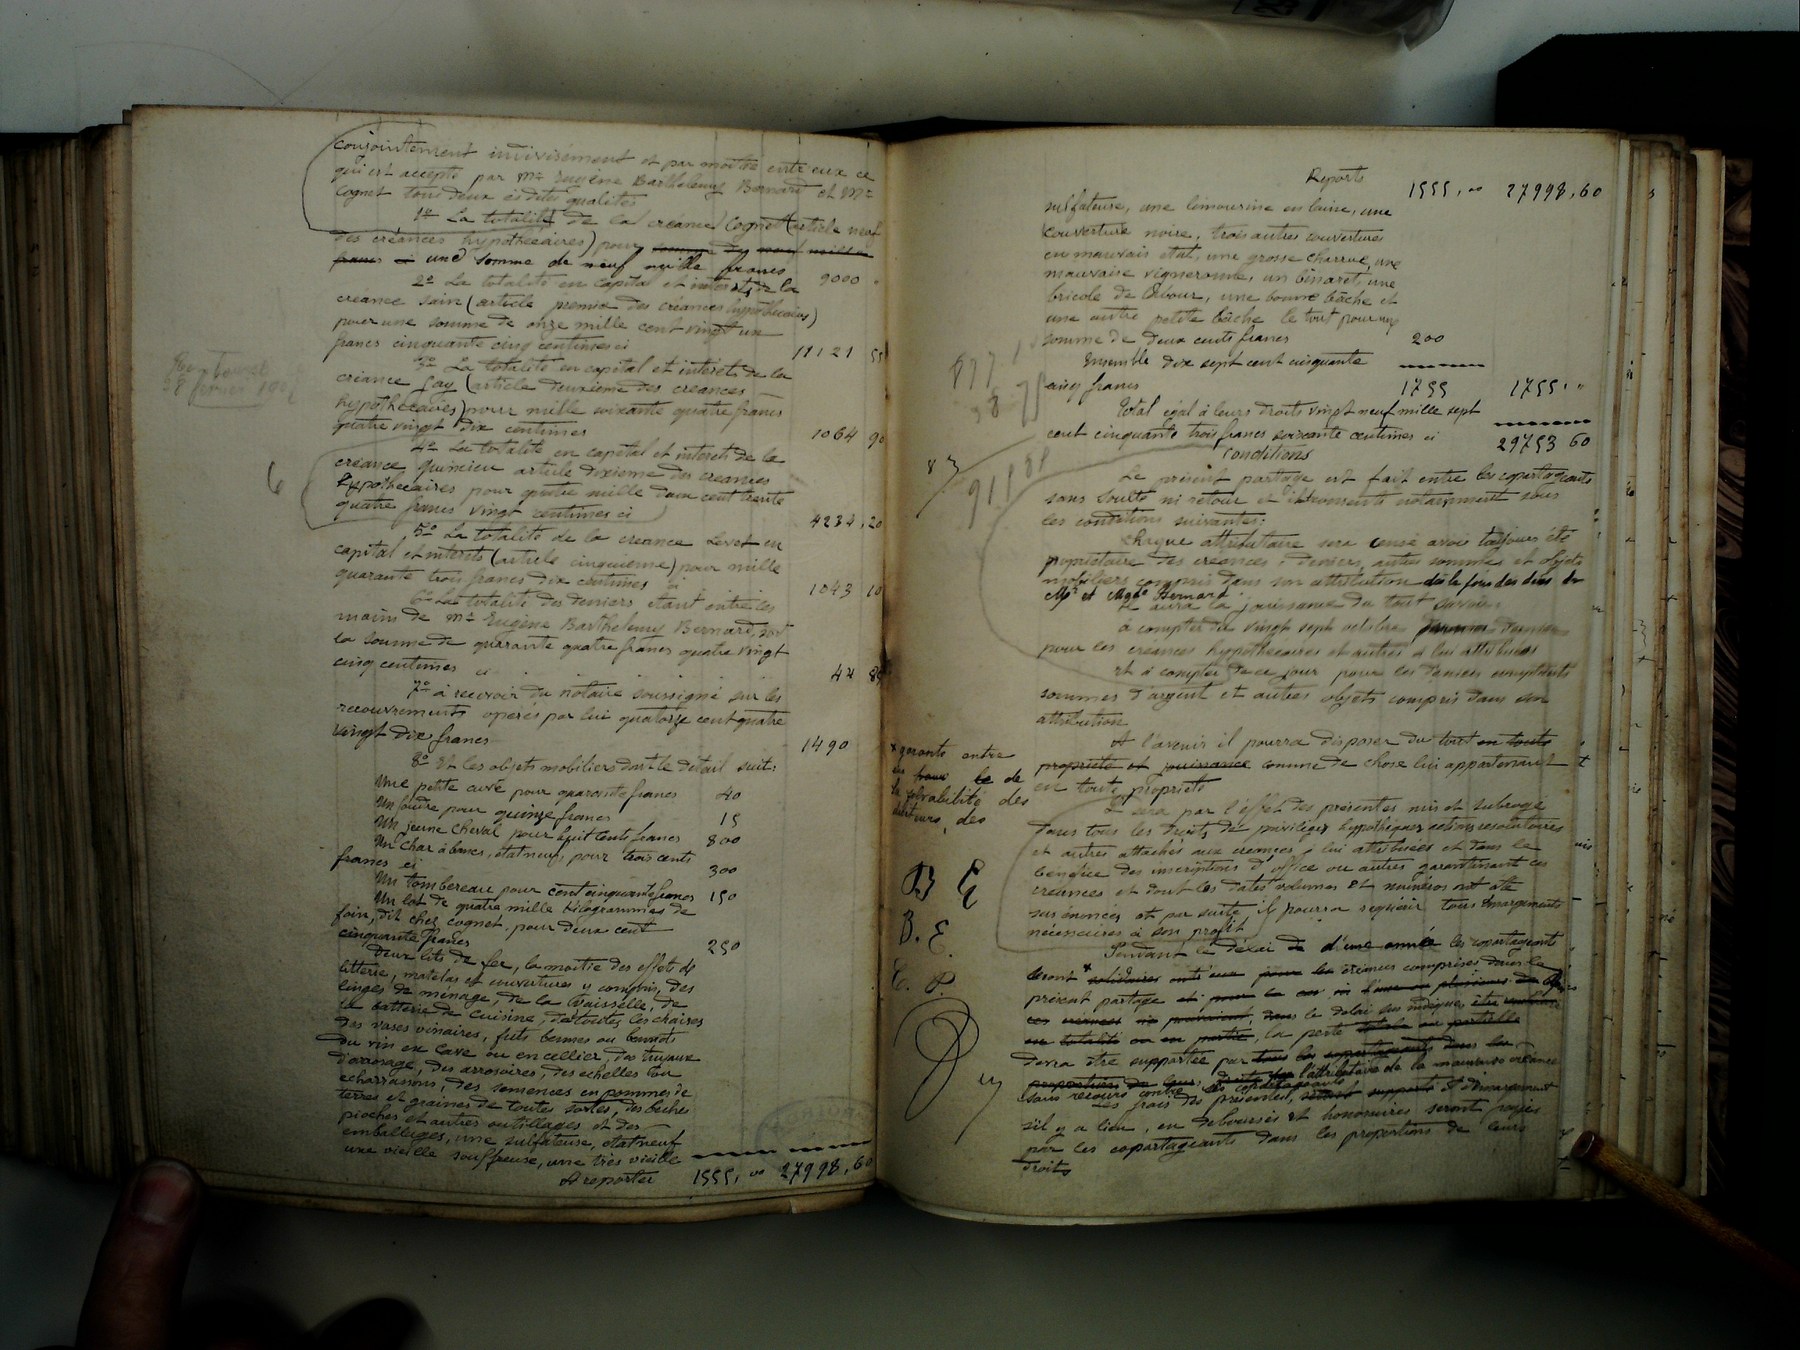 conjointement indivisément et par moitié entre eux ce
qui est accepté par Mr Eugène Barthélemy Bernard et Mr
Cognet tous deux èsdites qualités
1º La totalité de la créance Cognet (article neuf
des créances hypothécaires) pour
francs ci une somme de neuf mille francs 9000
2º La totalité en capital et intérêts de la
créance (article premier des créances hypothécaires)
pour une somme de onze mille cent vingt un
francs cinquante cinq centimes ci 11121 55
3º La totalité en capital et intérêts de la
créance Gay (article deuxième des créances
hypothécaires) pour mille soixante quatre francs
quatre vingt dix centimes 1064 90
4º La totalité en capital et intérêts de la
créance article dixième des créances
hypothécaires pour quatre mille deux cent trente
quatre francs vingt centimes ci 4234,20
5º La totalité de la créance Levet en
capital et intérêts (article cinquième) pour mille
quarante trois francs dix centimes ci 1043 10
6º La totalité des deniers étant entre les
mains de Mr Eugène Barthélemy Bernard, soit
la somme de quarante quatre francs quatre vingt
cinq centimes ci 44 85
7º à recevoir du notaire soussigné sur les
recouvrements opérés par lui quatorze cent quatre
vingt dix francs 1490
8º Et les objets mobiliers dont le détail suit:
Une petite cuve pour quarante francs 40
Un foudre pour quinze francs 15
Un jeune cheval pour huit cents francs 800
Un char à bancs, état neuf, pour trois cents
francs ci 300
Un tombereau pour cent cinquante francs 150
Un lot de quatre mille kilogrammes de
foin, dit chez Cognet, pour deux cent
cinquante francs 250
Deux lits de fer, la moitié des effets de
litterie, matelas et couvertures y compris, des
linges de ménage, de la vaisselle, de
la batterie de cuisine, de toutes les chaises
des vases vinaires, futs bennes ou bennots
du vin en cave ou en cellier, des tuyaux
d'arrosage, des arrosoires, des echelles ou
echarrassons, des semences en pommes de
terres et graines de toutes sortes, des bèches
pioches et autres outillages et des
emballages, une sulfateuse, état neuf
une vieille souffreuse, une très vieille
A reporter 1555,00 27998,60
6
Reports 1555,00 27998,60
sulfateuse, une limousine en laine, une
couverture noire, trois autres couvertures
en mauvais état, une grosse charrue, une
mauvaise vigneronne, un binaret, une
bricole de labour, une bonne bâche et
une autre petite bâche le tout pour une
somme de deux cents francs 200
Ensemble dix sept cent cinquante
cinq francs 1755 1755,"
Total égal à leurs droits vingt neuf mille sept
cent cinquante trois francs soixante centimes ci 29753 60
Conditions
Le présent partage est fait entre les copartageants
sans soulte ni retour et notamment sous
les conditions suivantes:
Chaque attributaire sera censé avoir toujours été
propriétaire des créances, deniers, autres sommes et objets
mobiliers compris dans son attribution dès le jour des décès de
Mr et Mme Bernard.
Il aura la jouissance du tout savoir:
à compter du vingt sept octobre dernier
pour les créances hypothécaires et autres à lui attribuées
et à compter de ce jour pour les deniers comptants
sommes d'argent et autres objets compris dans son
attribution
A l'avenir il pourra disposer du tout en toute
propriété et jouissance comme de chose lui appartenant
en toute propriété
Il sera par l'effet des présentes mis et subrogé
dans tous les droits de privilèges hypothèques actions résolutoires
et autres attachés aux créances à lui attribuées et dans le
bénéfice des inscriptions d'office ou autres garantissant ces
créances et dont les dates volumes et numéros ont été
sus énoncés et par suite il pourra requérir tous émargements
nécessaires à son profit
Pendant le délai de d'une année les copartageants
seront * solidaires entre eux pour les créances comprises dans le
présent partage et pour le cas où l'une ou plusieurs de
ces créances ne pouvaient, dans le délai sus indiqué, être
en totalité ou en partie, la perte totale ou partielle
devra être supportée par tous les copartageants dans les
proportions de leurs droits l'attributaire de la mauvaise créance
sans recours contre ses copartageants
Les frais des présentes, et d'émargement
s'il y a lieu, en déboursés et honoraires seront payés
par les copartageants dans les proportions de leurs
droits
* garants entre
eux de
la solvabilité des
débiteurs, des
B E
B. E.
E. P.